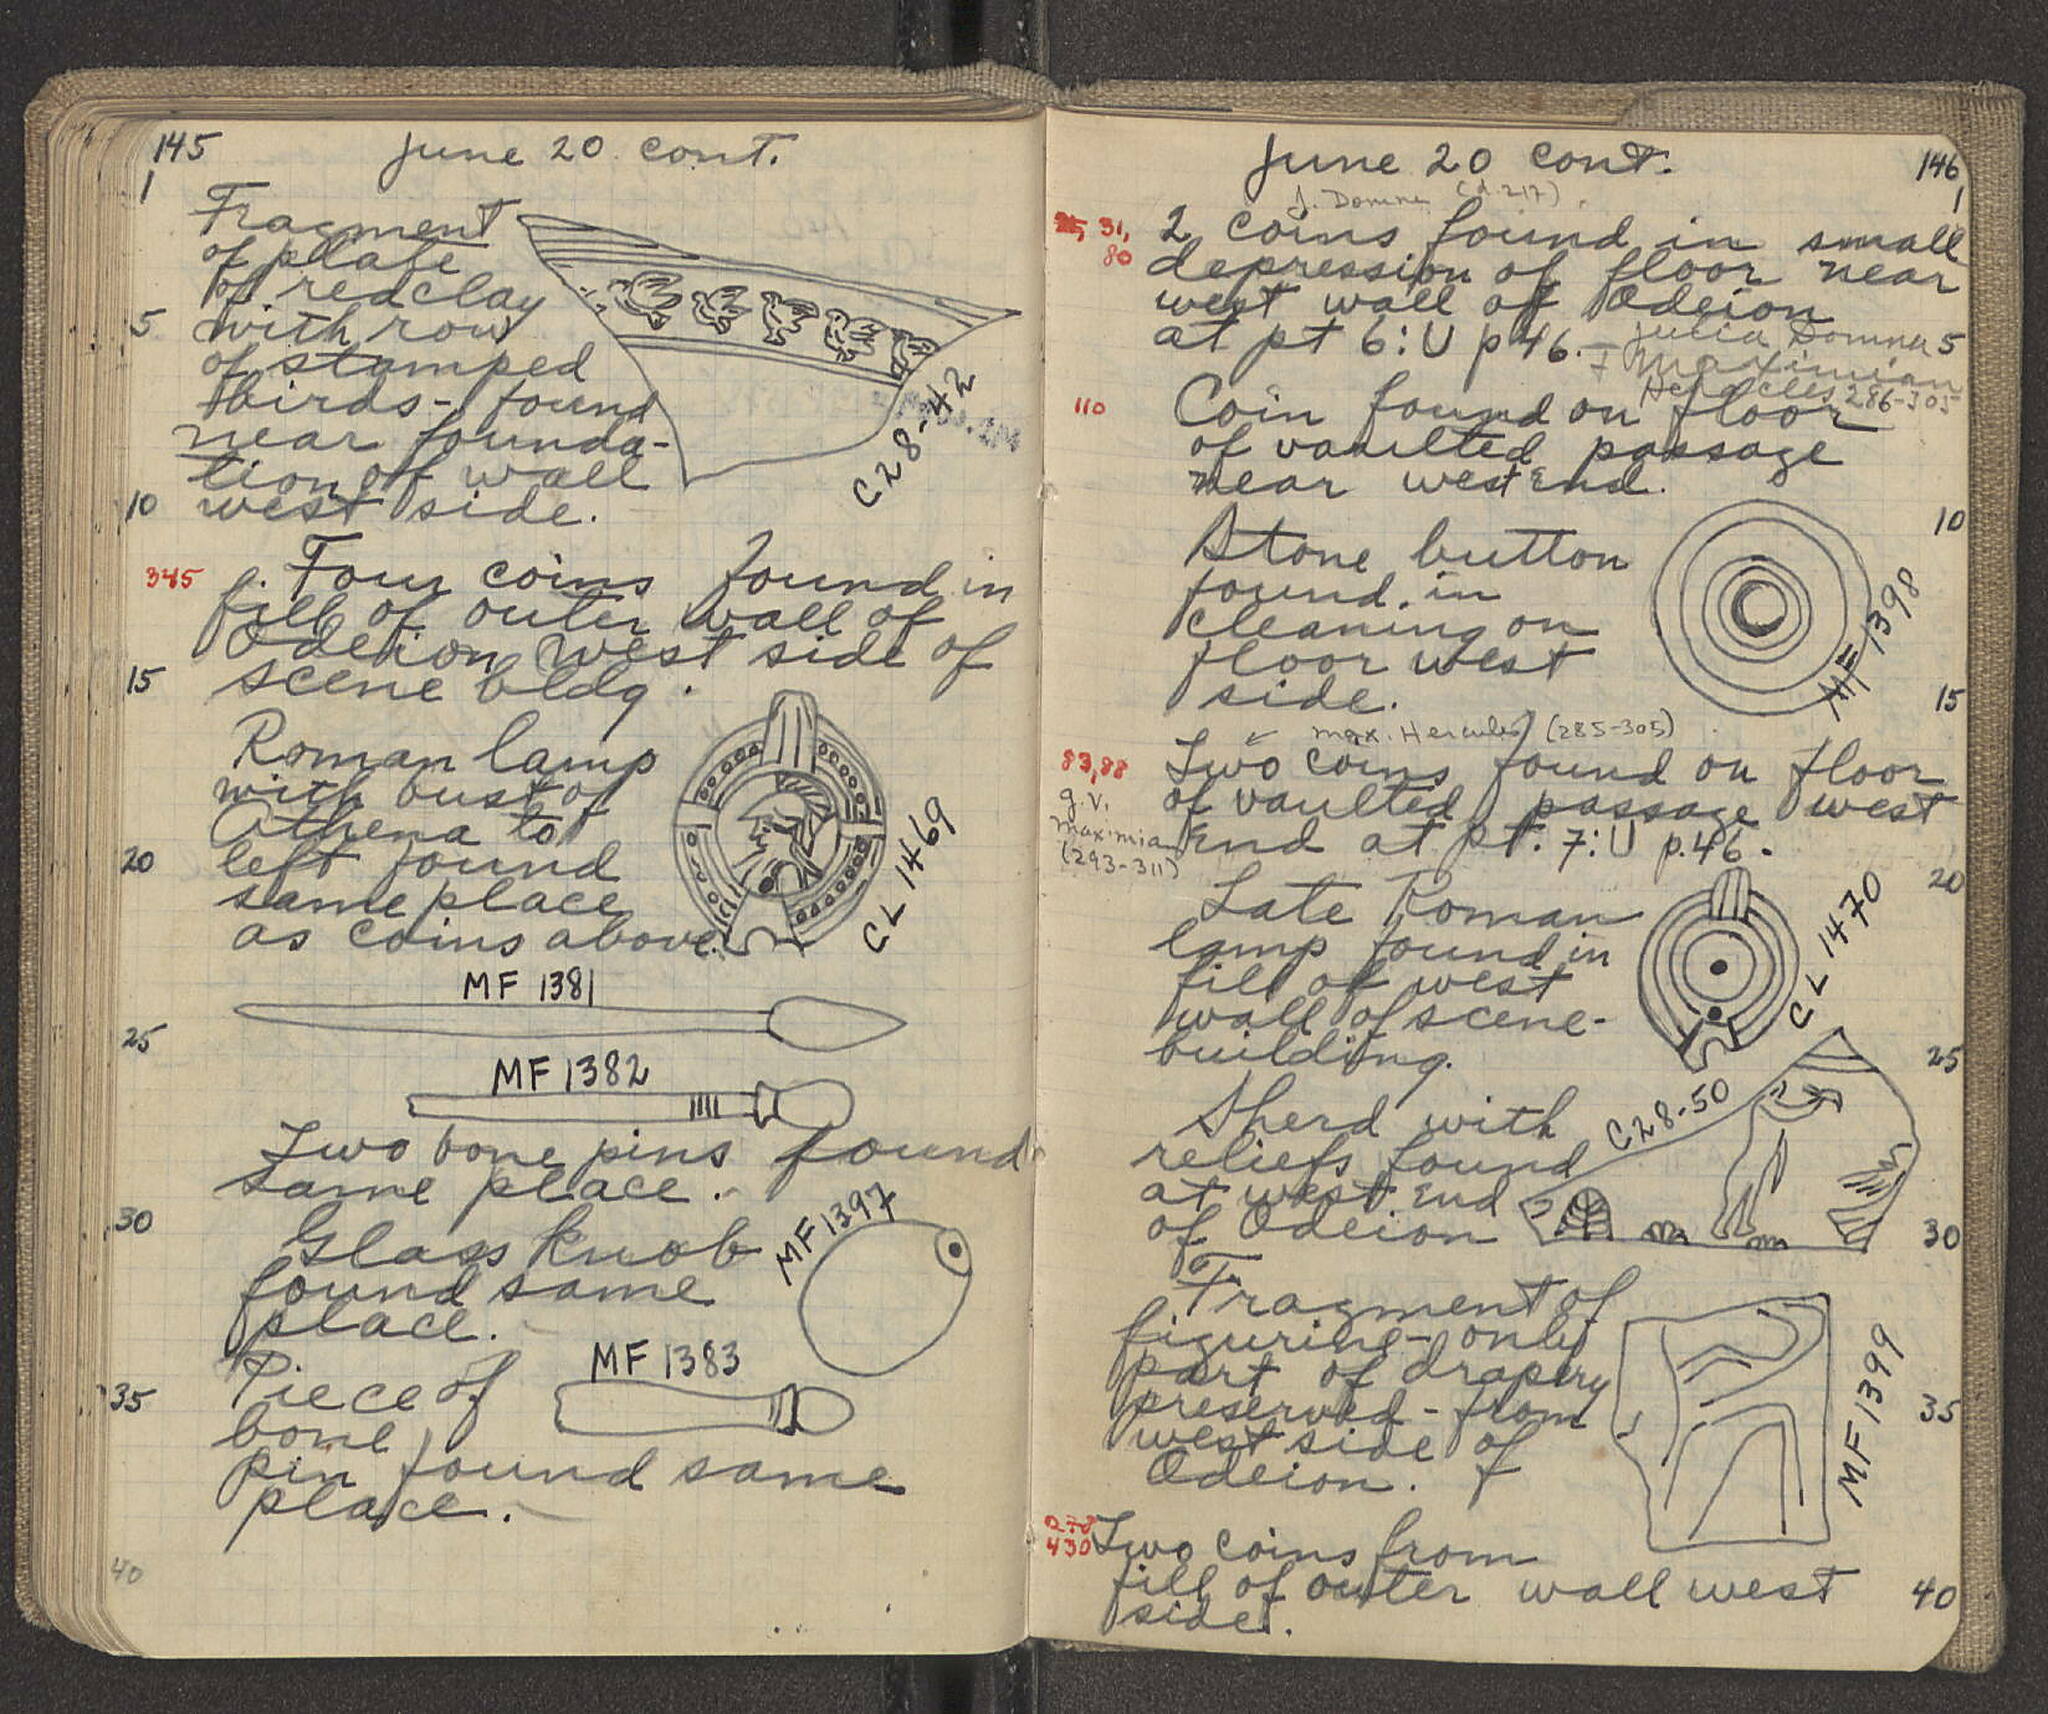 145
June 20 cont.
1
Fragment
of plate
of red clay
5
with row
of stamped
birds - found
near founda-
tion of wall
10
west side.
C28-42
345
Four coins found in
fill of outer wall of
Odeion west side of
15
scene bldg.
Roman lamp
with bust of
Athena to
20
left found
same place
as coins above.
CL 1469
MF 1381
25
MF 1382
Two bone pins found
same place.
30
Glass knob
found same
place.
MF 1397
35
Piece of
bone
pin found same
place.
MF 1383
40
June 20 cont.
146
1
J. Domna (d. 217)
31,
80
2 coins found in small
depression of floor near
west wall of Odeion
at pt 6:U p 46. - Julia Domna 5
+ Maximian
Heracles 286-305
110
Coin found on floor
of vaulted passage
near west end.
10
Stone button
found in
cleaning on
floor west
side.
MF 1398
15
max. Hercules (285-305)
83,88
Two coins found on floor
g.v.
of vaulted passage west
maximia
end at pt. 7:U p.46.
(293-311)
20
Late Roman
lamp found in
fill of west
wall of scene-
building.
CL 1470
25
Sherd with
reliefs found
at west end
of Odeion
C28-50
30
Fragment of
figurine - only
part of drapery
preserved - from
west side of
Odeion.
MF 1399
35
278
430
Two coins from
fill of outer wall west
40
side.